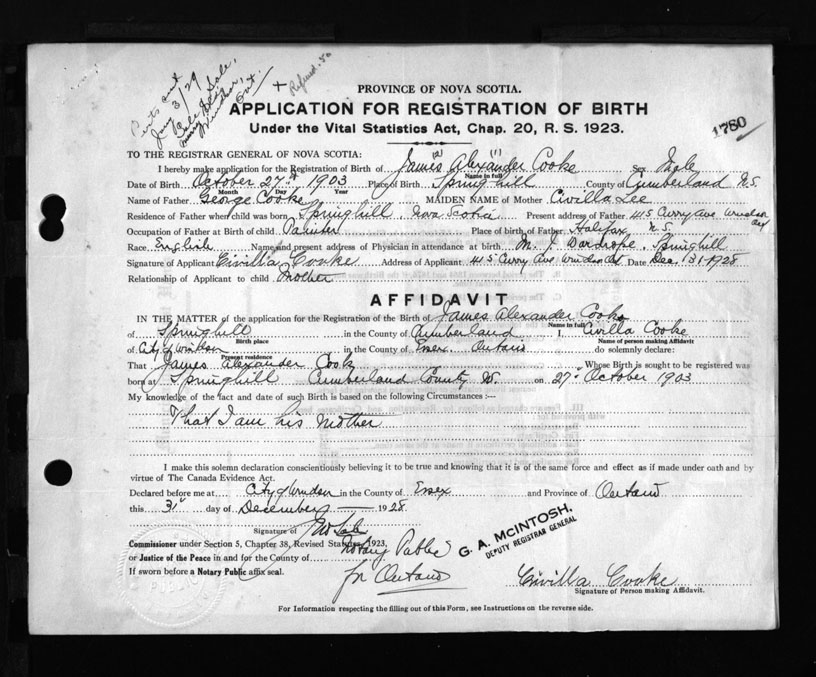 Jany 3/29
+ Refund. 50
PROVINCE OF NOVA SCOTIA.
APPLICATION FOR REGISTRATION OF BIRTH
Under the Vital Statistics Act, Chap. 20, R. S. 1923.
1780
TO THE REGISTRAR GENERAL OF NOVA SCOTIA:
(2) (1)
I hereby make application for the Registration of Birth of James Alexander Cooke Sex Male
Name in full
Date of Birth October 27th 1903 Place of Birth Springhill County of Cumberland N.S.
Month Day Year
Name of Father George Cooke MAIDEN NAME of Mother Civilla Lee
Residence of Father when child was born Springhill, Nova Scotia Present address of Father 415 Curry Ave Windsor Ont
Occupation of Father at Birth of child Painter Place of birth of Father Halifax N.S.
Race English Name and present address of Physician in attendance at birth M. J. Wardrope, Springhill
Signature of Applicant Civilla Cooke Address of Applicant 415 Curry Ave Windsor Ont Date Dec. 31-1928
Relationship of Applicant to child Mother
AFFIDAVIT
IN THE MATTER of the application for the Registration of the Birth of James Alexander Cooke
Name in full
of Springhill in the County of Cumberland I, Civilla Cooke
Birth place Name of person making Affidavit
of City of Windsor in the County of Essex Ontario do solemnly declare:
Present residence
That James Alexander Cook Whose Birth is sought to be registered was
born at Springhill Cumberland County on 27th October 1903
My knowledge of the fact and date of such Birth is based on the following Circumstances :—
That I am his Mother
I make this solemn declaration conscientiously believing it to be true and knowing that it is of the same force and effect as if made under oath and by
virtue of The Canada Evidence Act.
Declared before me at City of Windsor in the County of Essex and Province of Ontario
this 31st day of December 1928
Signature of
Commissioner under Section 5, Chapter 38, Revised Statutes, 1923, Notary Public
or Justice of the Peace in and for the County of
If sworn before a Notary Public affix seal. for Ontario
G. A. McINTOSH.
DEPUTY REGISTRAR GENERAL
Civilla Cooke
Signature of Person making Affidavit.
For Information respecting the filling out of this Form, see Instructions on the reverse side.